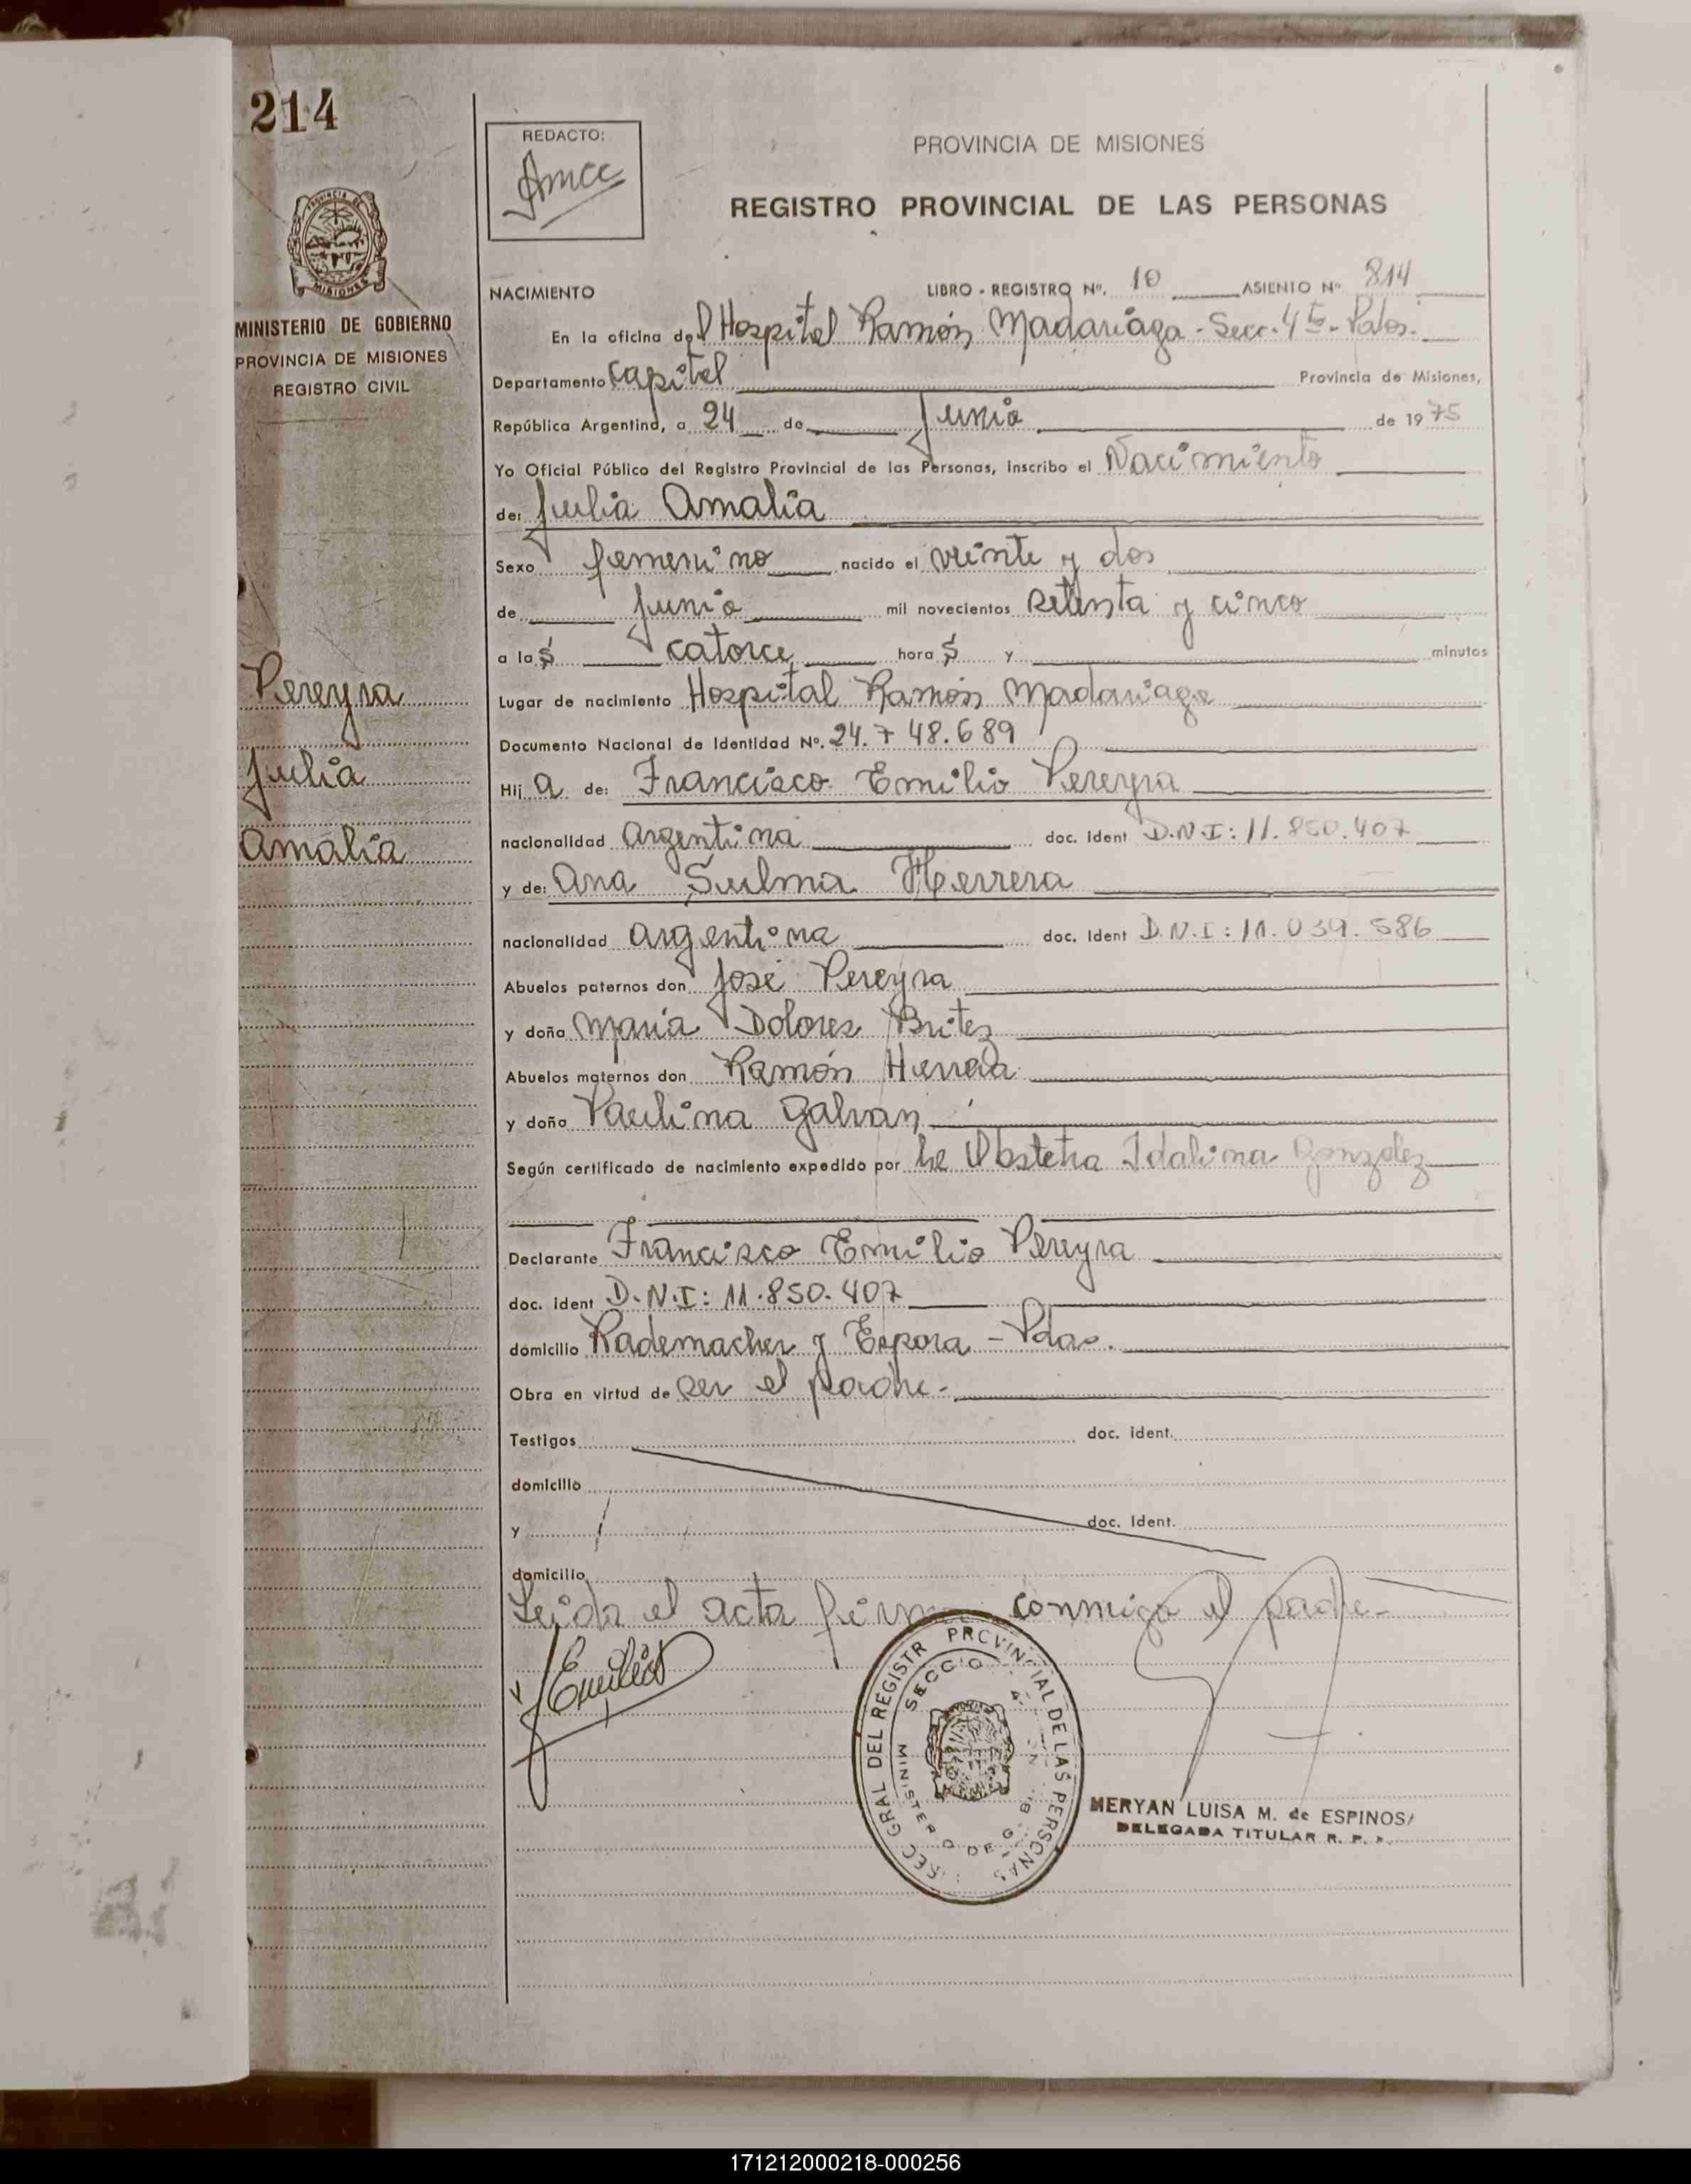 214
REDACTO:
PROVINCIA DE MISIONES
REGISTRO PROVINCIAL DE LAS PERSONAS
PROVINCIA DE
MISIONES
MINISTERIO DE GOBIERNO
PROVINCIA DE MISIONES
REGISTRO CIVIL
Pereyra
Julia
Amalia
NACIMIENTO LIBRO - REGISTRO Nº. 10 ASIENTO Nº 814
En la oficina del Hospital Ramón Madariaga - Secc. 4ta
Departamento Capital Provincia de Misiones,
República Argentina, a 24 de Junio de 1975
Yo Oficial Público del Registro Provincial de las Personas, inscribo el Nacimiento
de: Julia Amalia
Sexo femenino nacido el veinte y dos
de junio mil novecientos setenta y cinco
a las catorce horas y minutos
Lugar de nacimiento Hospital Ramón Madariaga
Documento Nacional de Identidad Nº. 24.748.689
Hija de: Francisco Emilio Pereyra
nacionalidad argentina doc. ident D.N.I: 11.850.407
y de: Ana Sulma Herrera
nacionalidad argentina doc. ident D.N.I: 11.039.586
Abuelos paternos don José Pereyra
y doña María Dolores Britez
Abuelos maternos don Ramón Herrera
y doña Paulina Galvan
Según certificado de nacimiento expedido por la Obstetra Idalina Gonzalez
Declarante Francisco Emilio Pereyra
doc. ident D.N.I: 11.850.407
domicilio Rademacher y Espora - Pdas.
Obra en virtud de ser el padre.
Testigos doc. ident.
domicilio
y doc. Ident.
domicilio
Leida el acta firma conmigo el padre-
Emilio
REC GRAL DEL REGISTR PROVINCIAL DE LAS PERSONAS
SECCIO
MINISTERIO DE
MERYAN LUISA M. de ESPINOS
DELEGADA TITULAR R. P.
171212000218-000256